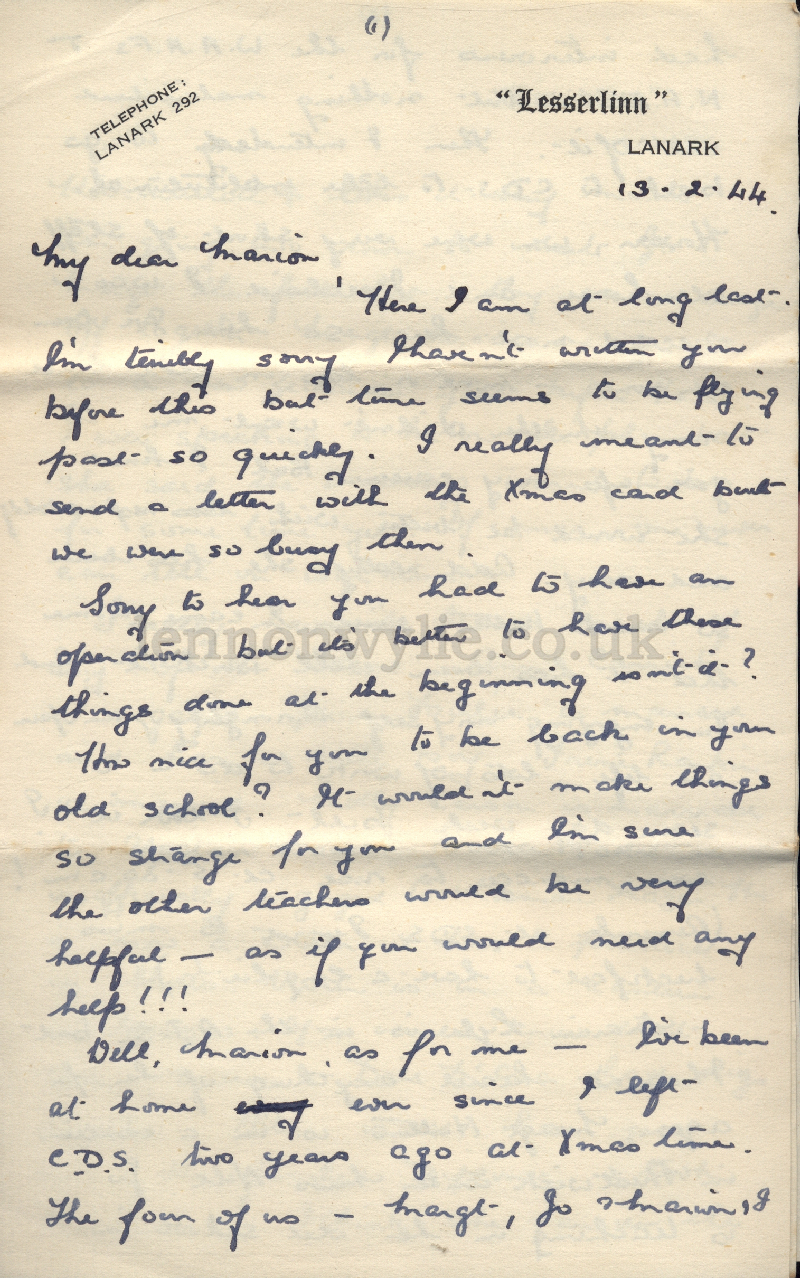 (1)
TELEPHONE:
LANARK 292
"Lesserlinn"
LANARK
13.2.44.
My dear Marion,
Here I am at long last.
I'm terribly sorry I haven't written you
before this but time seems to be flying
past so quickly. I really meant to
send a letter with the Xmas card but
we were so busy then.
Sorry to hear you had to have an
operation but it's better to have these
things done at the beginning isn't it?
How nice for you to be back in your
old school? It wouldn't make things
so strange for you and I'm sure
the other teachers would be very
helpful — as if you would need any
help!!!
Well, Marion, as for me — I've been
at home ever since I left
C.D.S. two years ago at Xmas time.
The four of us — Margt, Jo & Marion & I
lennonwylie.co.uk